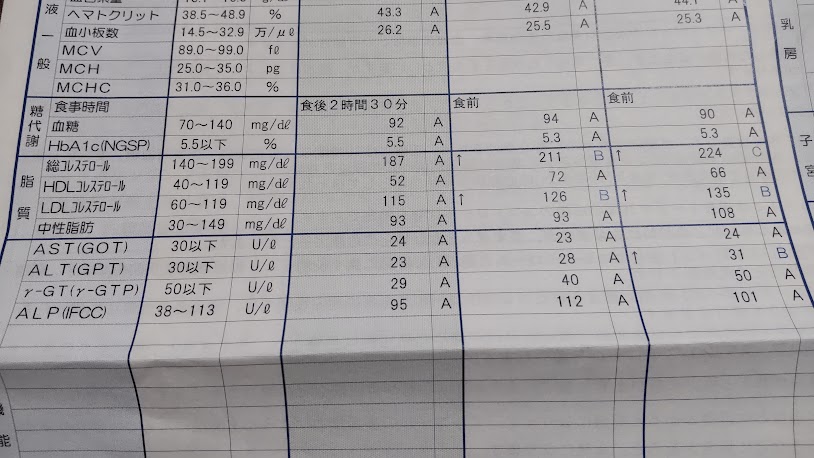 液一般
ヘマトクリット 38.5～48.9 % 43.3 A 42.9 A 44.1 A
血小板数 14.5～32.9 万/μℓ 26.2 A 25.5 A 25.3 A
MCV 89.0～99.0 fℓ
MCH 25.0～35.0 pg
MCHC 31.0～36.0 %
糖代謝
食事時間 食後2時間30分 食前 食前
血糖 70～140 mg/dℓ 92 A 94 A 90 A
HbA1c(NGSP) 5.5以下 % 5.5 A 5.3 A 5.3 A
脂質
総ｺﾚｽﾃﾛｰﾙ 140～199 mg/dℓ 187 A ↑ 211 B ↑ 224 C
HDLｺﾚｽﾃﾛｰﾙ 40～119 mg/dℓ 52 A 72 A 66 A
LDLｺﾚｽﾃﾛｰﾙ 60～119 mg/dℓ 115 A ↑ 126 B ↑ 135 B
中性脂肪 30～149 mg/dℓ 93 A 93 A 108 A
AST(GOT) 30以下 U/ℓ 24 A 23 A 24 A
ALT(GPT) 30以下 U/ℓ 23 A 28 A ↑ 31 B
γ-GT(γ-GTP) 50以下 U/ℓ 29 A 40 A 50 A
ALP(IFCC) 38～113 U/ℓ 95 A 112 A 101 A
能
乳房
子宮